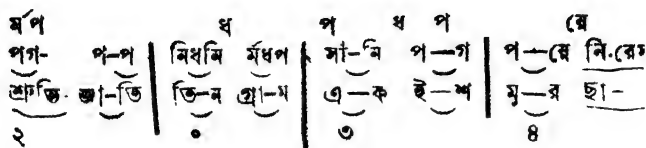 র্ম প ধ প ধ প রে
পগ- প-প | নিধনি র্মধপ | সা-নি প—গ | প—রে নি.রেস
শ্রুতি- জা-তি | তি-ন গ্রা-ম | এ-ক ই-শ | মু-র ছা-
২ ০ ৩ ৪